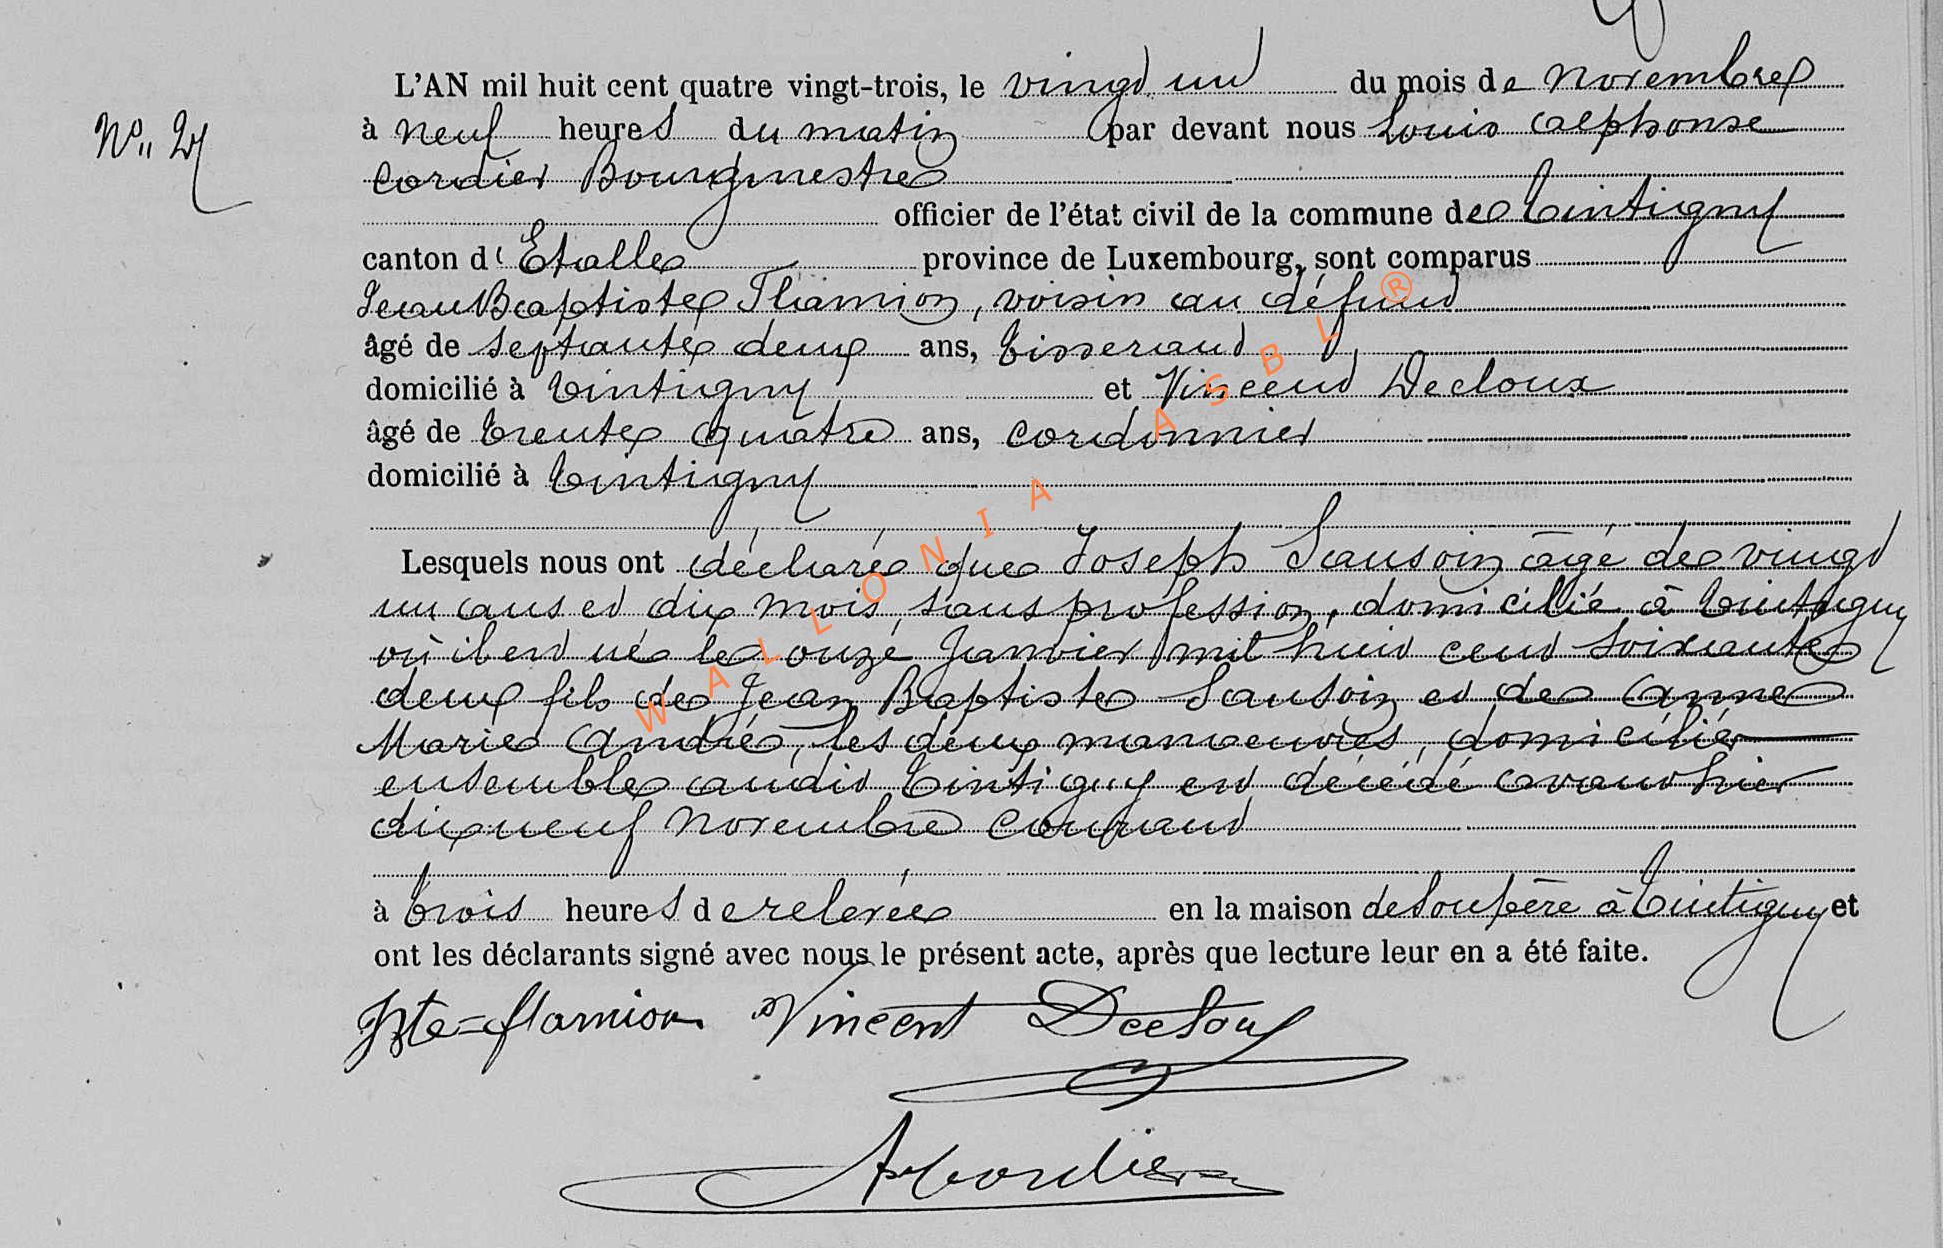 L'AN mil huit cent quatre vingt-trois, le vingt un du mois de novembre
N° 27
à neuf heures du matin par devant nous Louis Alphonse
Cordier Bourgmestre
officier de l'état civil de la commune de Tintigny
canton d'Etalle province de Luxembourg, sont comparus
Jean Baptiste Flamion, voisin au défunt
âgé de septante deux ans, tisserand,
domicilié à Tintigny et Vincent Decloux
âgé de trente quatre ans, cordonnier
domicilié à Tintigny
Lesquels nous ont déclaré que Joseph Sausoin âgé de vingt
un ans et dix mois, sans profession, domicilié à Tintigny
où il est né le onze Janvier mil huit cent soixante
deux fils de Jean Baptiste Sausoin et de Anne
Marie André, les deux manoeuvres, domicilié
ensemble audit Tintigny est décédé avant hier
dix neuf novembre courant
à trois heures de relevée en la maison de son père à Tintigny et
ont les déclarants signé avec nous le présent acte, après que lecture leur en a été faite.
Jbte flamion Vincent Decloux
A Cordier
WALLONIA ASBL ®